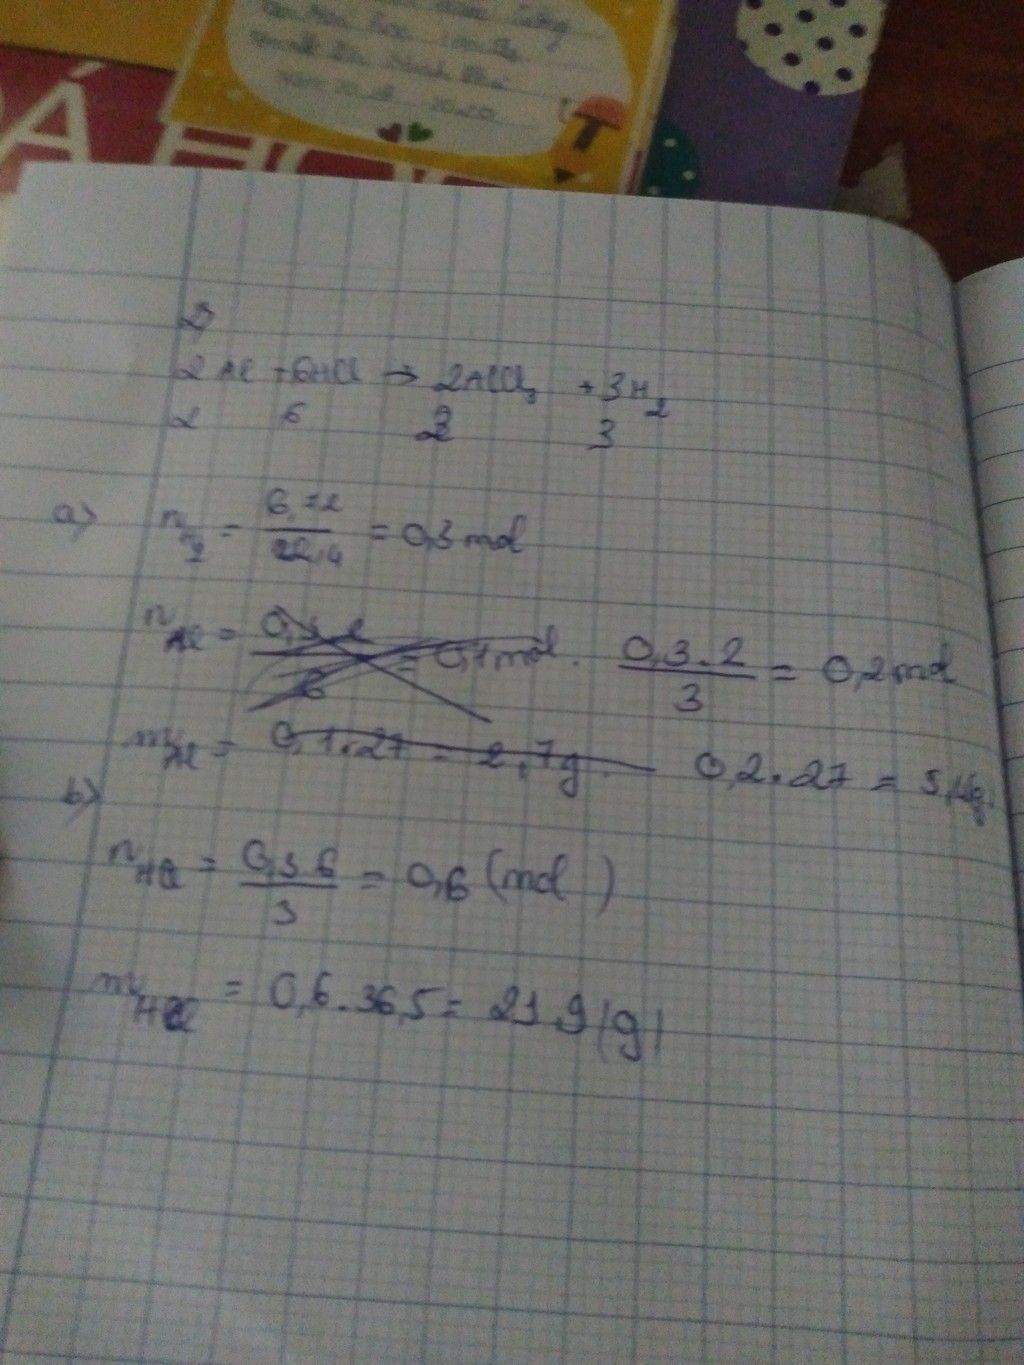 Á HỌC
2)
2Al + 6HCl → 2AlCl3 + 3H2
2 6 2 3
a) nH2 = 6,72 / 22,4 = 0,3 mol
nAl = 0,3 2 / 6 = 0,1 mol. 0,3.2 / 3 = 0,2 mol
mAl = 0,1.27 = 2,7g. 0,2.27 = 5,4g.
b)
nHCl = 0,3 6 / 3 = 0,6 (mol)
mHCl = 0,6.36,5 = 21.9 (g)